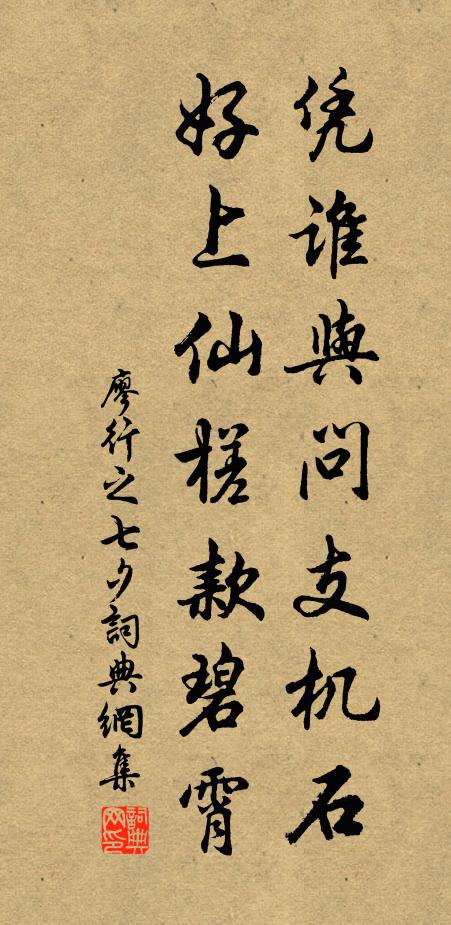 凭谁與问支机石
好上仙槎款碧霄
廖行之七夕詞典網集
詞典网印